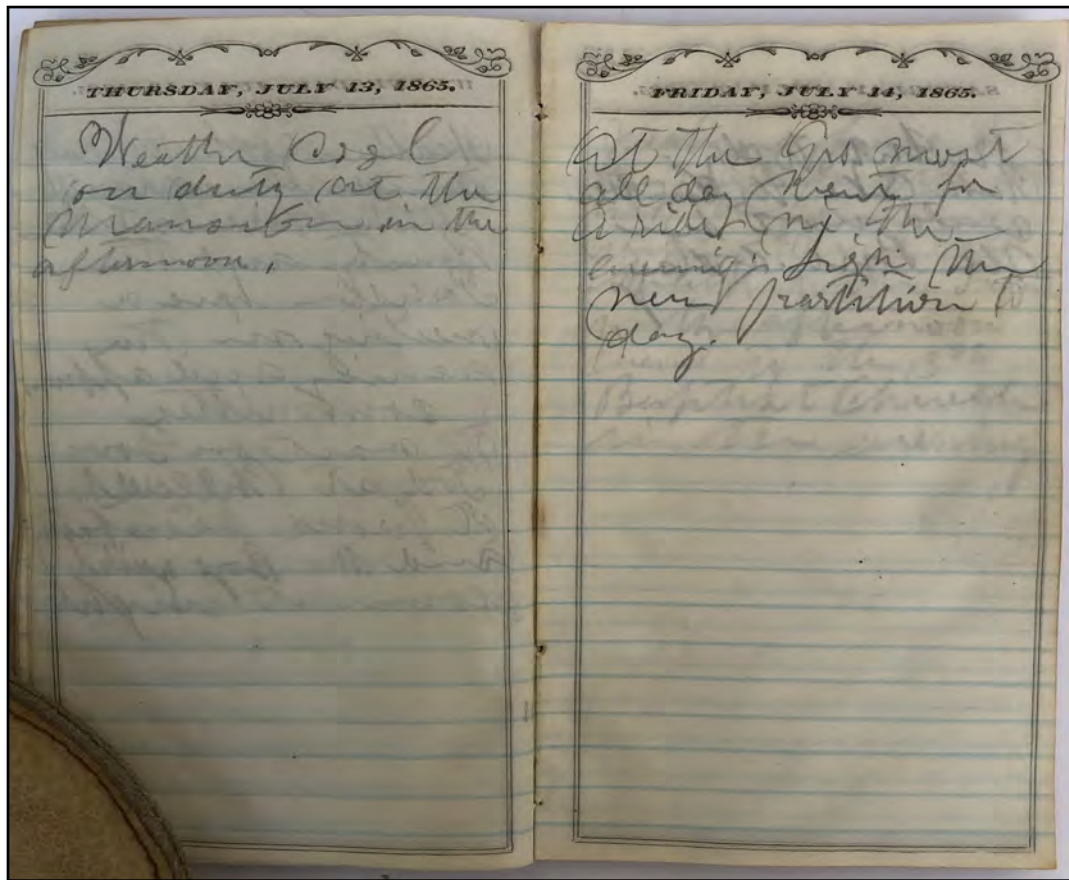 THURSDAY, JULY 13, 1865.
Weather Cool
on duty at the
Mansion in the
afternoon.
FRIDAY, JULY 14, 1865.
At the most
all day Went for
a ride in the
evening. the
new partition to
day.